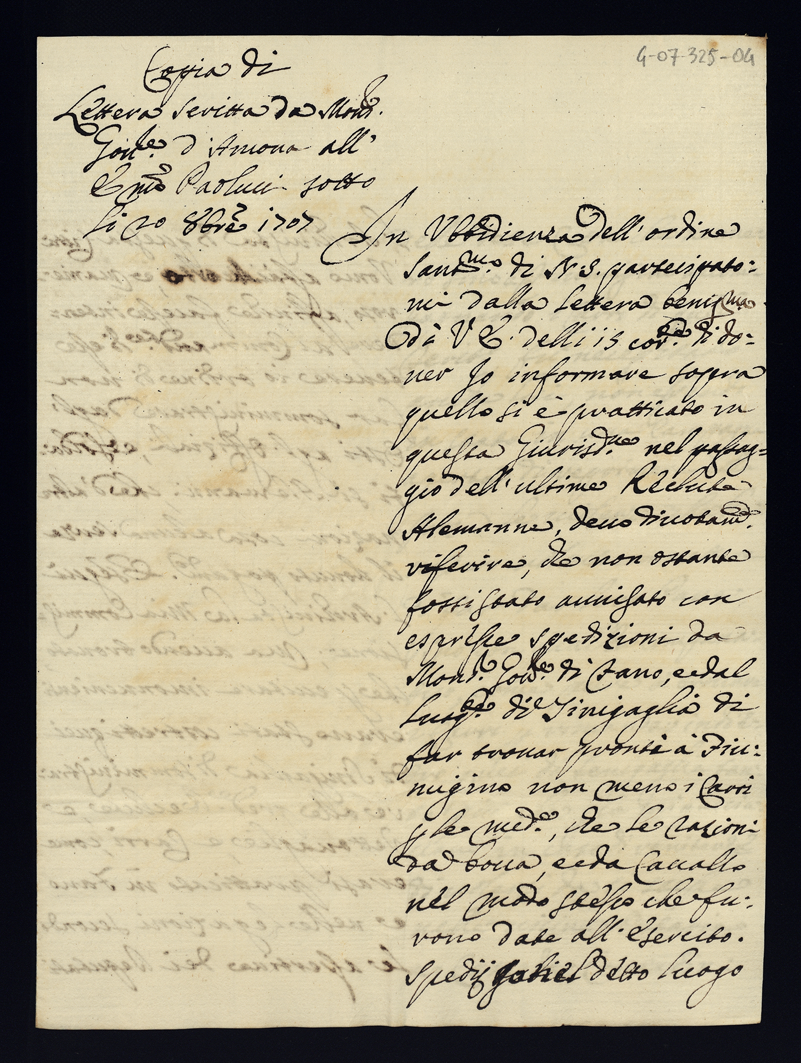 4-07-325-04
Coppia di
Lettera scritta da Mons.r
Gov.re d'Ancona all'
E.mo Paolucci sotto
li 20 8bre 1707
In Ubbidienza dell'ordine
Sant.mo di N. S. partecipato=
mi dalla lettera benig.ma
di V. E. delli 15 cor.te di do=
ver Io informare sopra
quello si è pratticato in
questa Giurisd.ne nel passag=
gio dell'ultime Reclute
Alemanne, devo divotam.te
riferire, che non ostante
fossi stato avvisato con
espresse spedizioni da
Mons.r Gov.re di Fano, e dal
Luog.te di Sinigaglia di
far trovar pronti à Fiu=
migino non meno i Carri
p le med.e, che le razioni
da bocca, e da Cavallo
nel modo stesso che fu=
rono date all'Esercito.
Spedij detto luogo